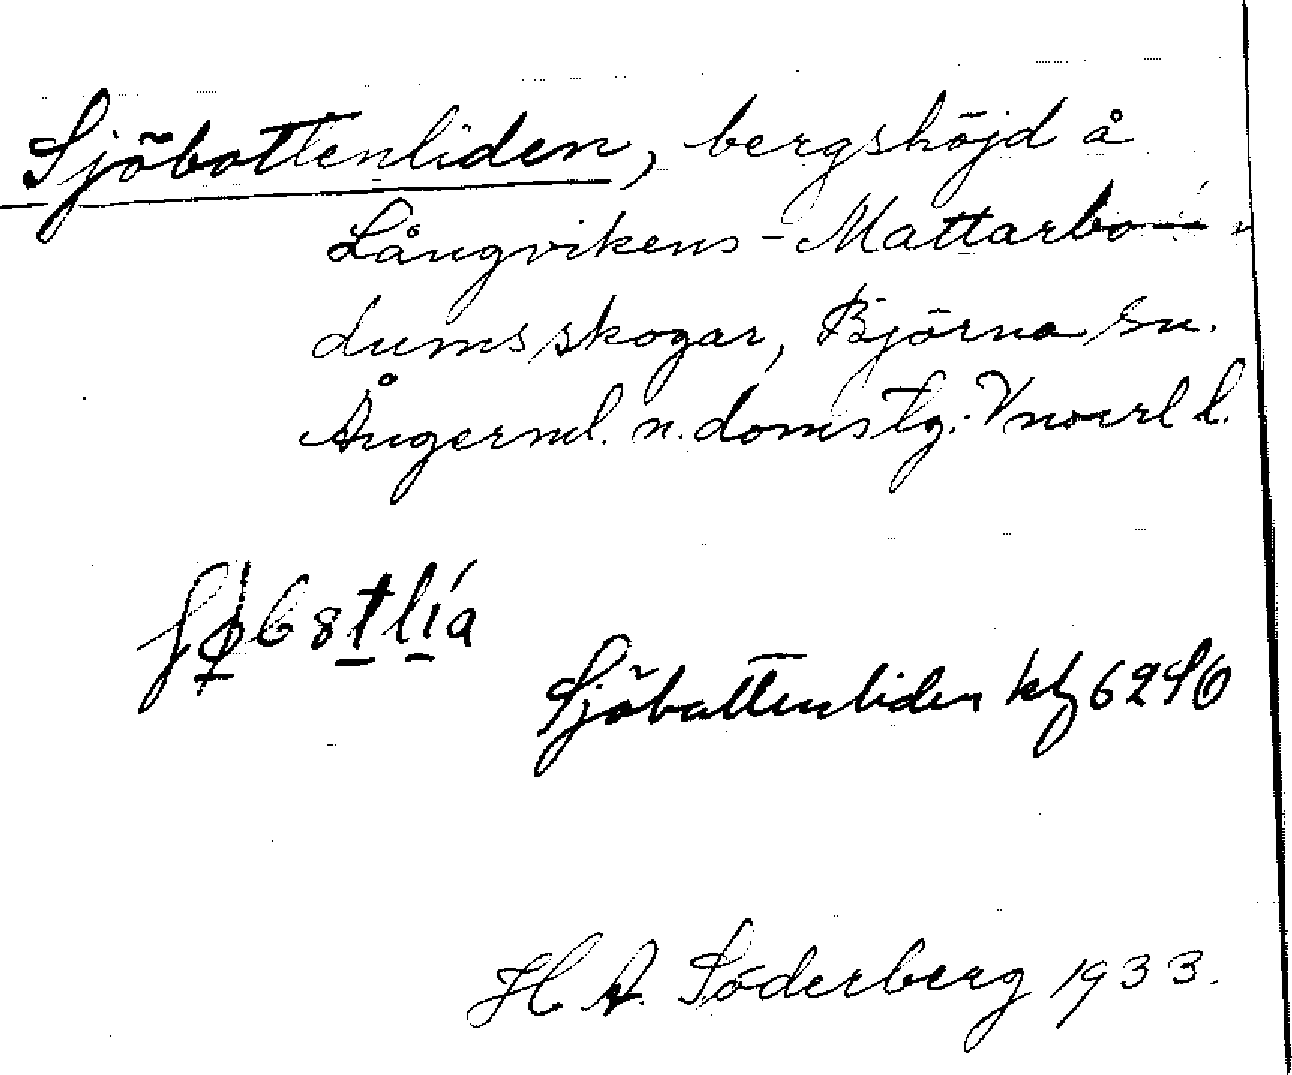 Sjöbottenliden, bergshöjd å
Långvikens - Mattarbo-
dums skogar, Björna sn.
Ångerml. n. domstg. Vnorrl l.
Sjöbottenliden kbl
H A. Söderberg 1933.